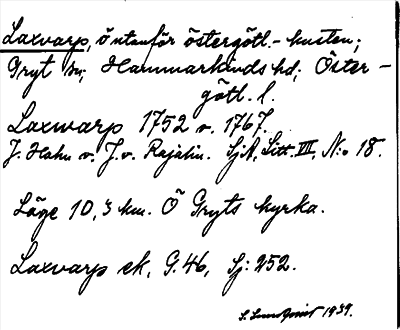 Laxvarp, ö utanför östergötl.-kusten;
Gryt sn; Hammarkinds hd; Öster-
götl. l.
Laxwarp 1752 o. 1767.
J. Hahn o. J. v. Rajalin. SjA, Litt. VIII, N:o 18.
Läge 10,3 km. Ö Gryts kyrka.
Laxvarp ek, G. 46, Sj: 252.
S. Lundqvist 1939.